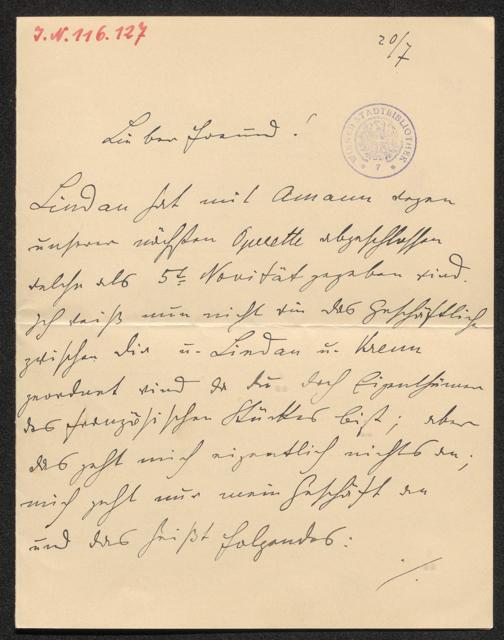 J.N. 116.127
20/7
WIENER STADTBIBLIOTHEK
* 7 *
Lieber Freund!
Lindau hat mit Amann wegen
unserer nächsten Operette abgeschlossen
welche als 5te Novität gegeben wird.
Ich weiß nun nicht wie das Geschäftliche
zwischen Dir u. Lindau u. Krenn
geordnet wird da Du doch Eigenthümer
des französischen Stückes bist; aber
das geht mich eigentlich nichts an;
mich geht nur mein Geschäft an
und das heißt folgendes:
./.